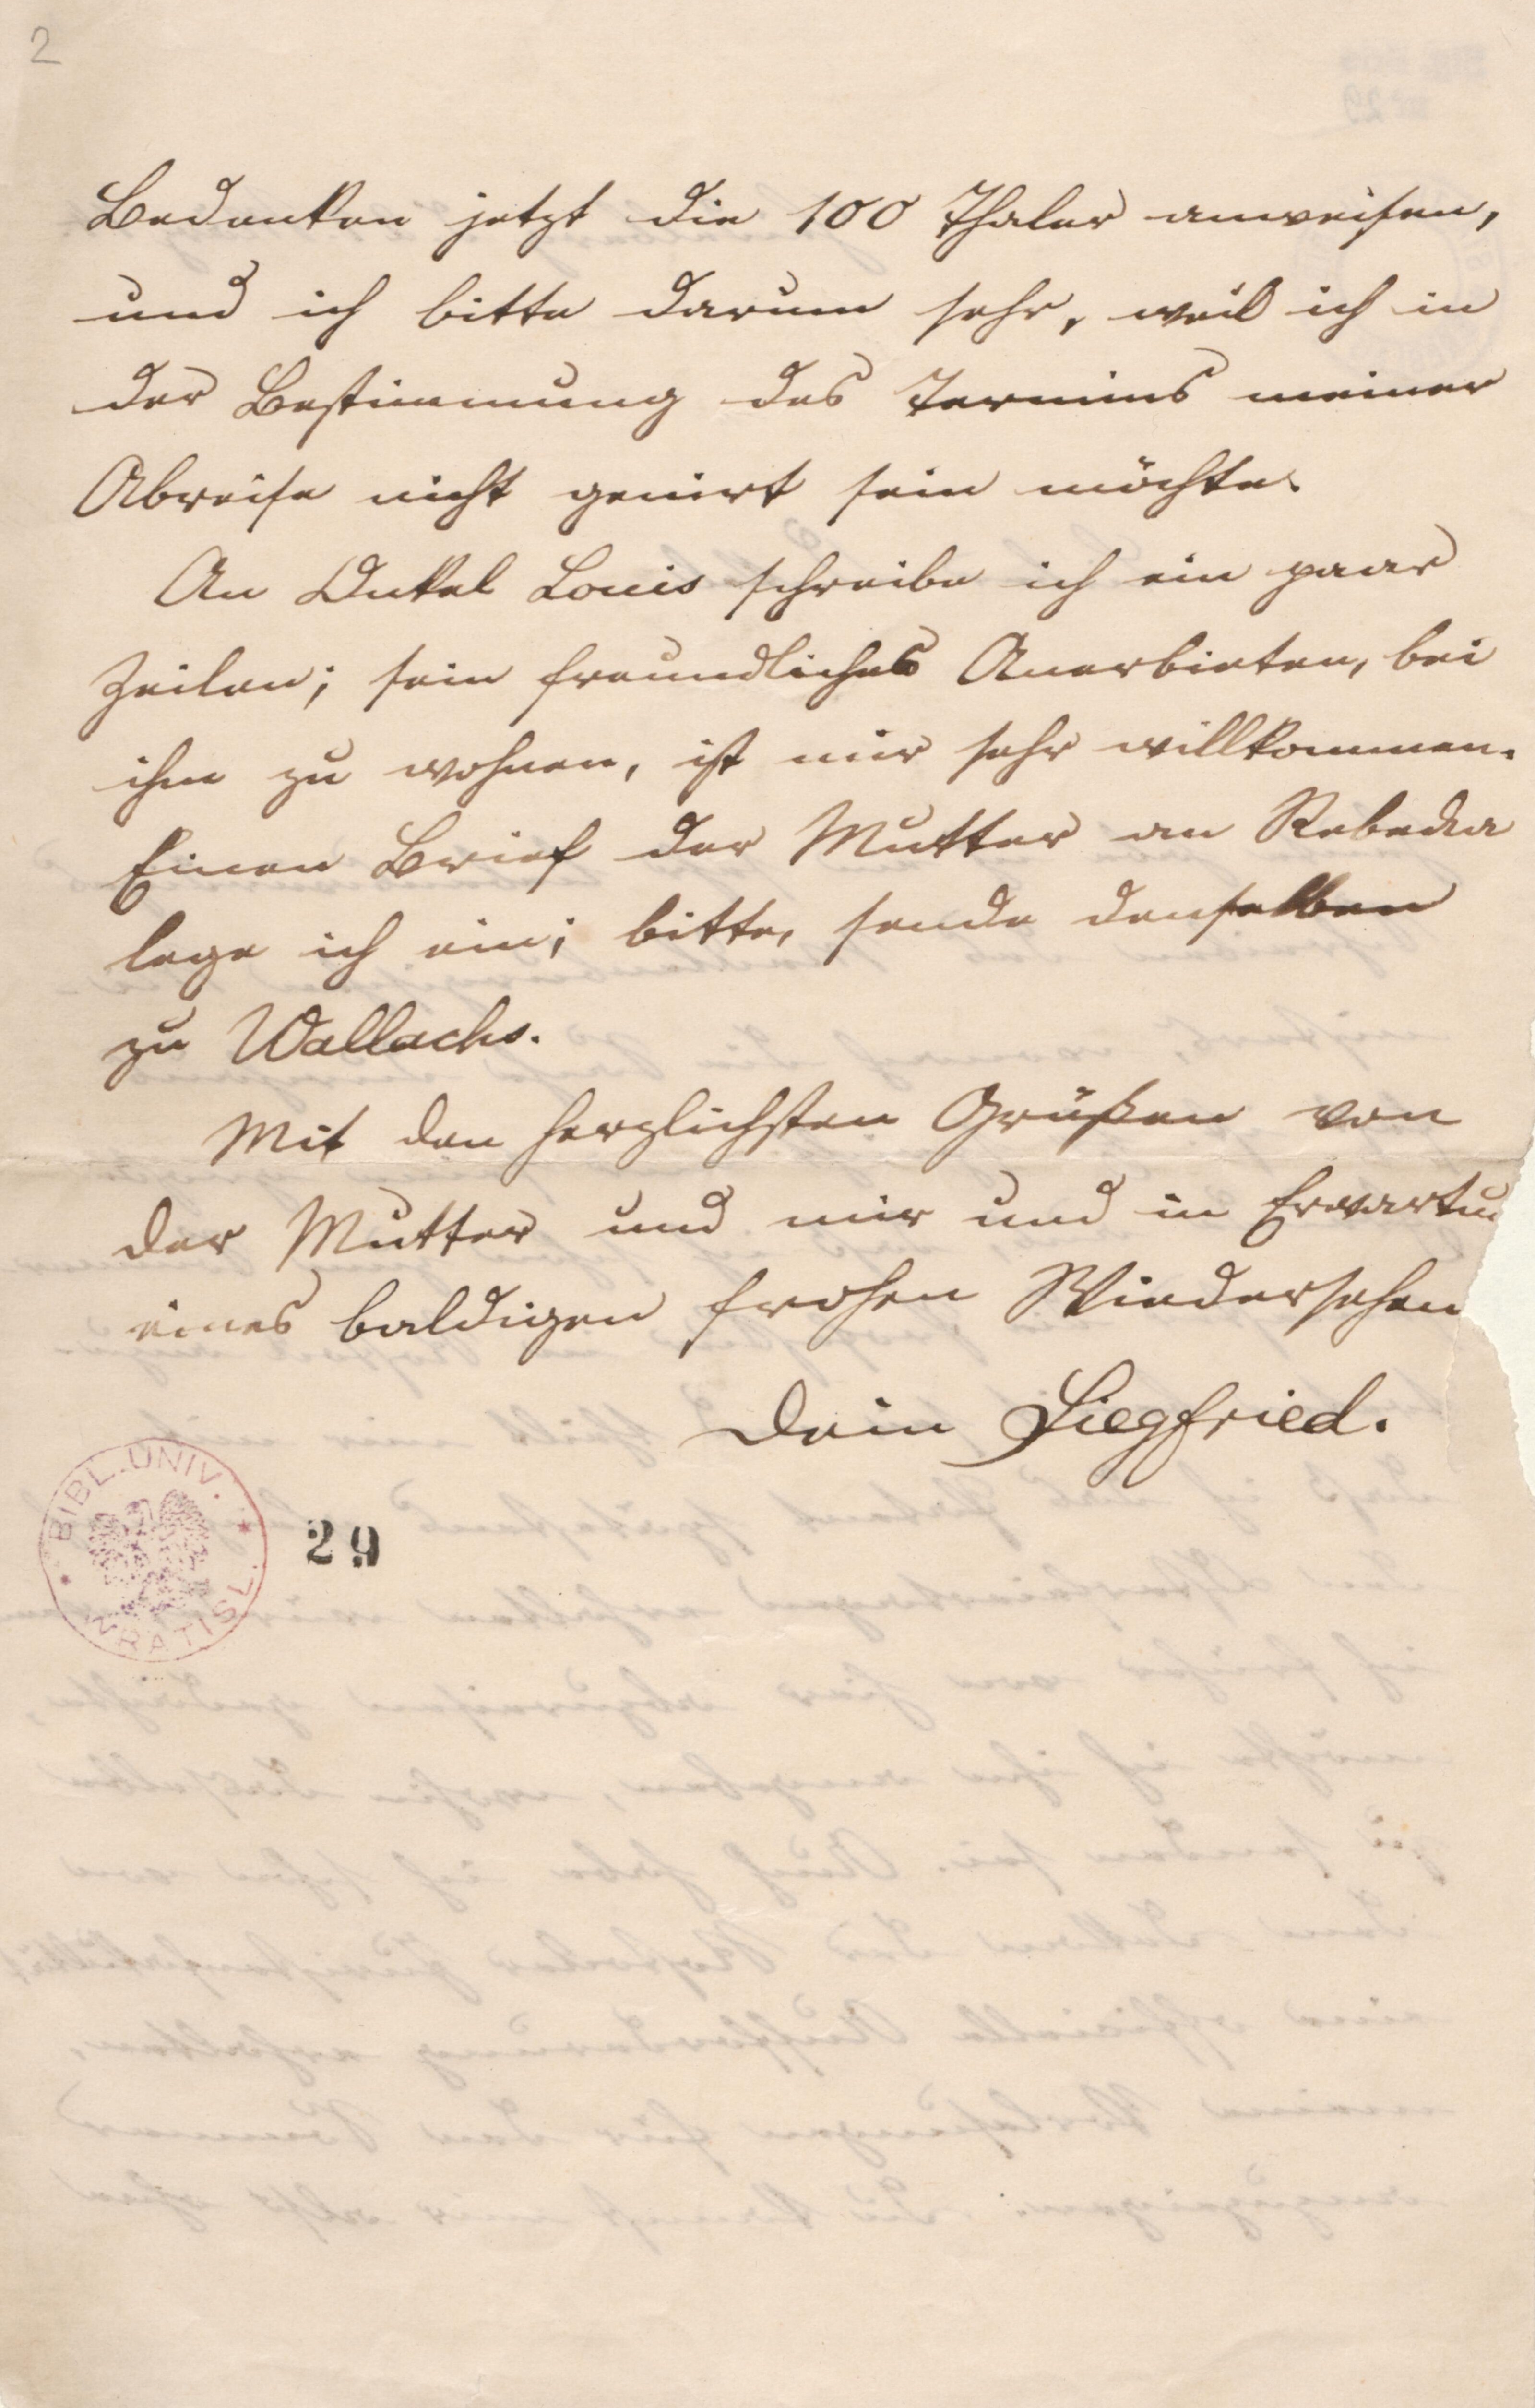 2
Bedenken jetzt die 100 Thaler anweisen,
und ich bitte darum sehr, weil ich in
der Bestimmung des Termins meiner
Abreise nicht genirt sein möchte.
An Onkel Louis schreibe ich ein paar
Zeilen; sein freundliches Anerbieten, bei
ihm zu wohnen, ist mir sehr willkommen.
Einen Brief der Mutter an Rebecka
lege ich ein; bitte, sende denselben
zu Wallachs.
Mit den herzlichsten Grüßen von
der Mutter und mir und in Erwartu
eines baldigen frohen Wiedersehen
Dein Siegfried.
BIBL. UNIV.
WRATISL.
29